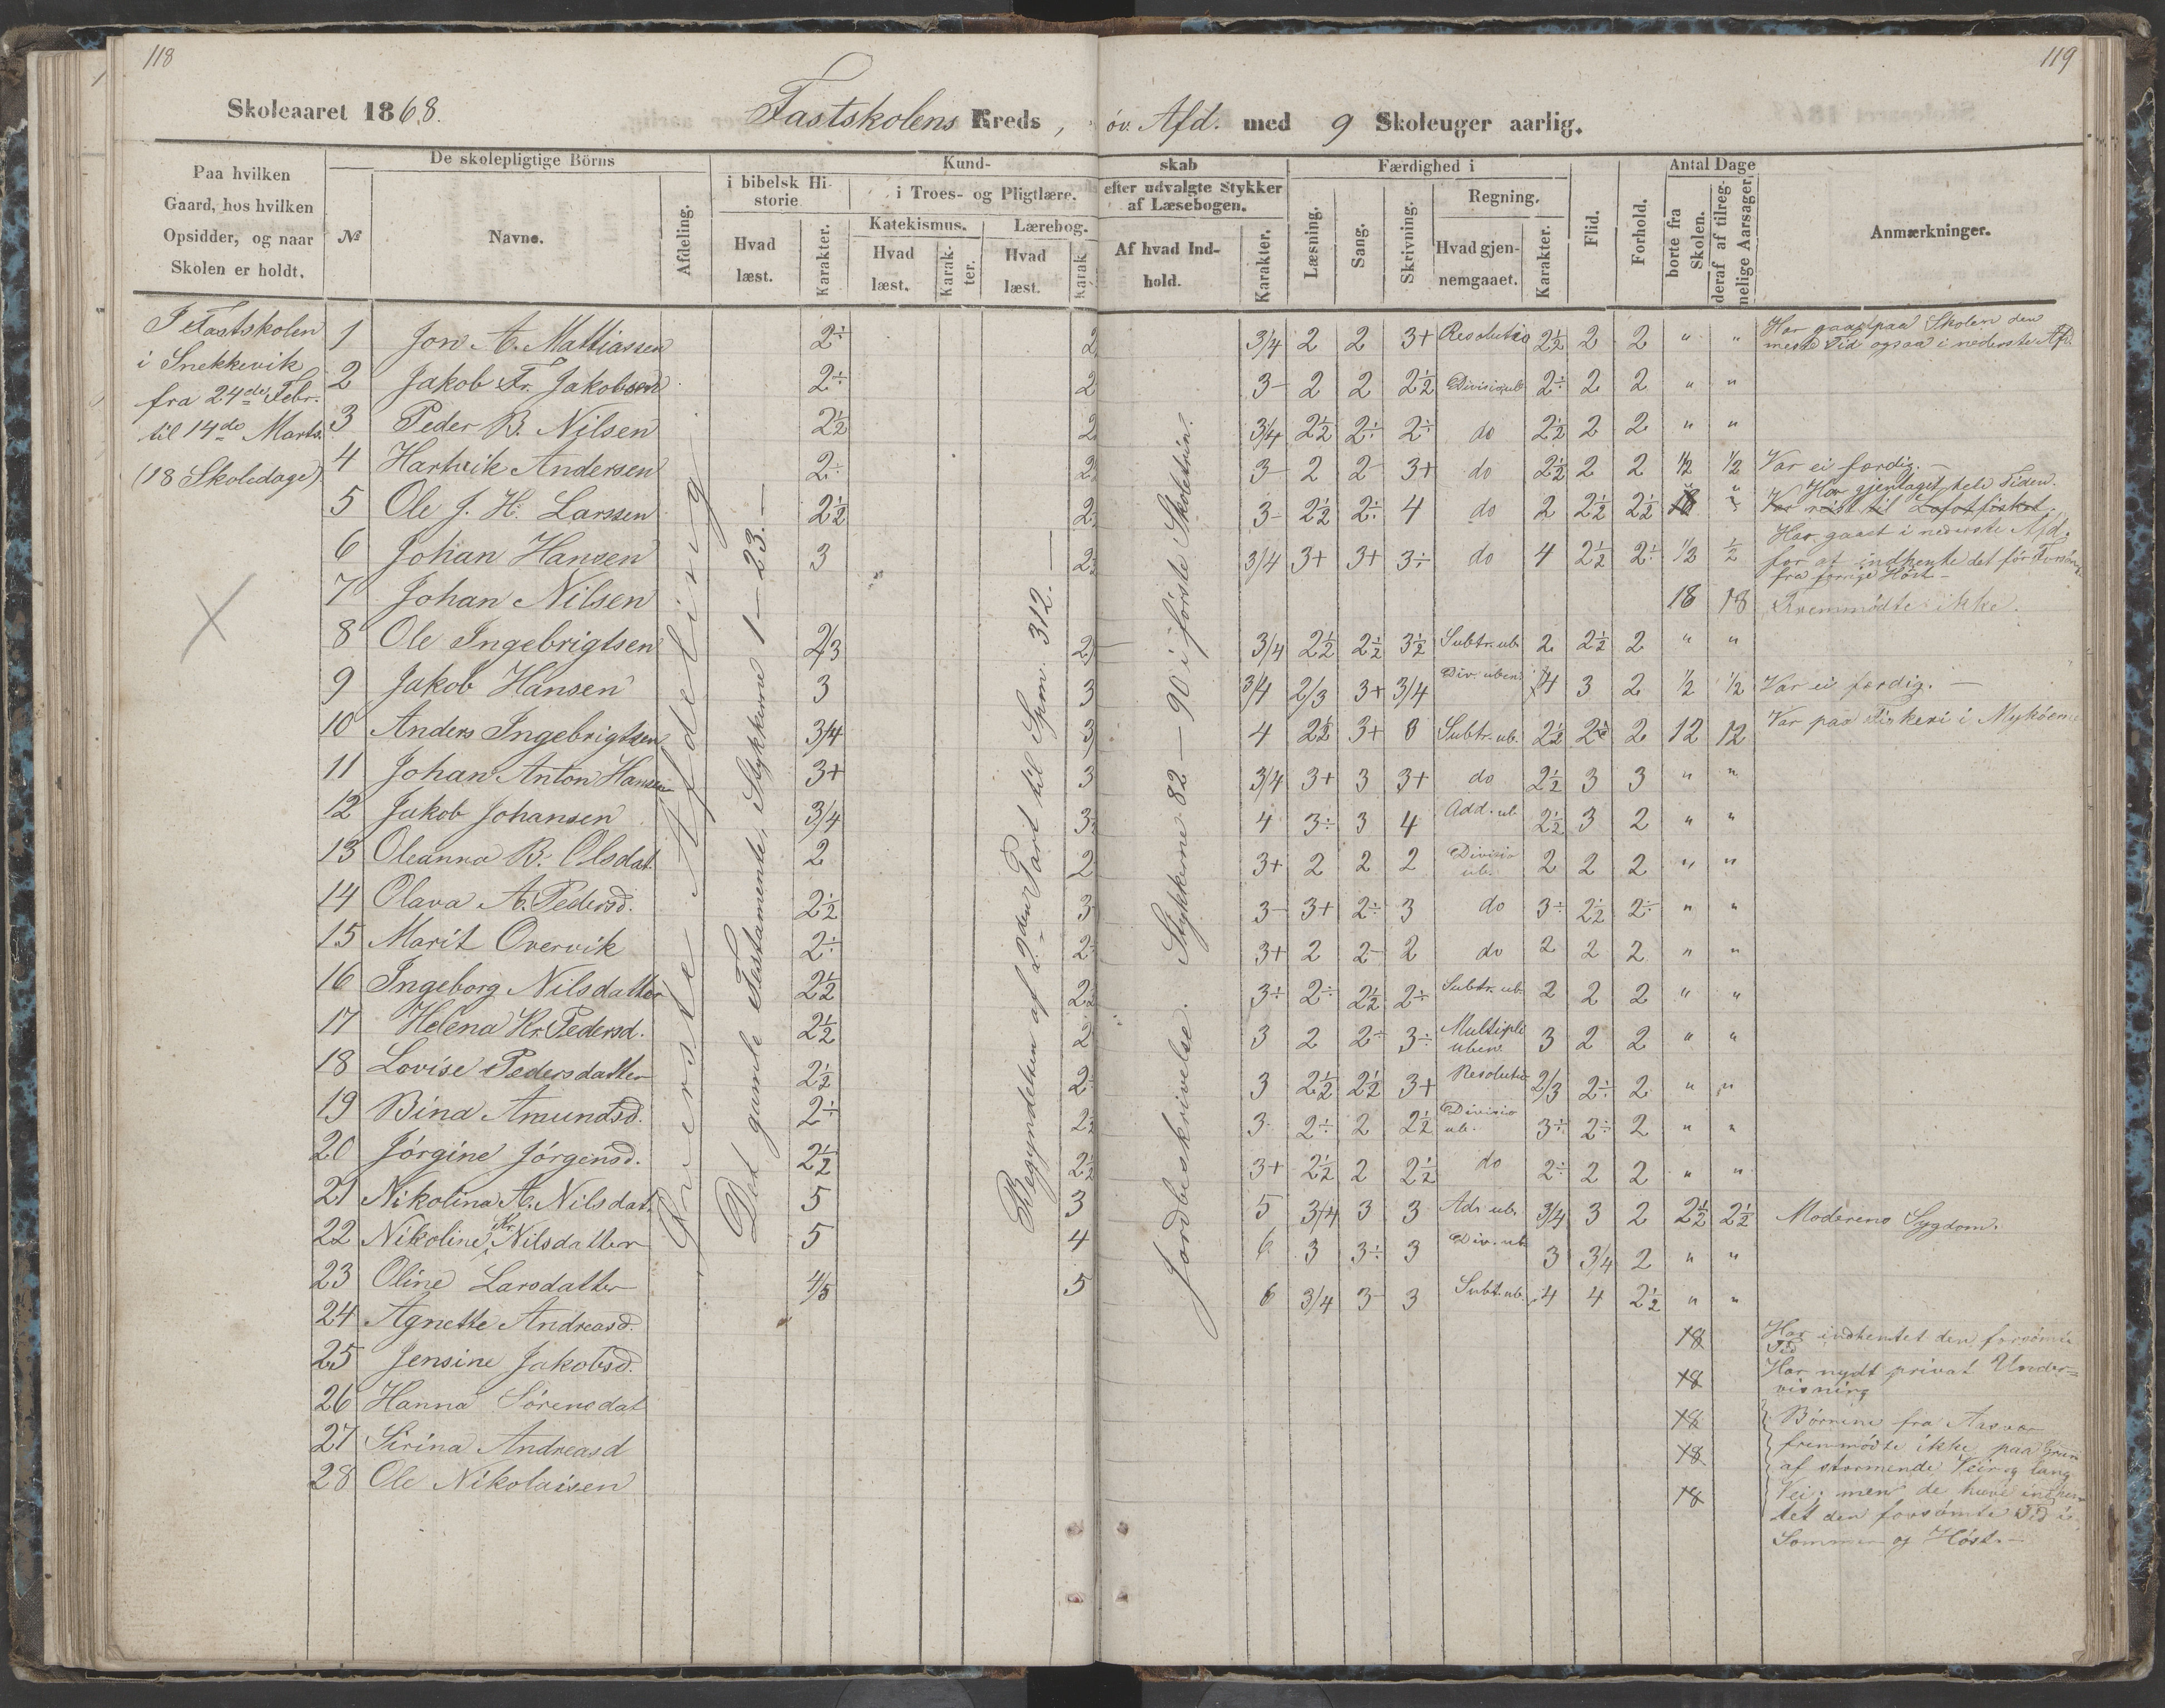 118
119
Skoleaaret 1868.
Fastskolens Kreds, öv. Afd. med 9 Skoleuger aarlig.
Paa hvilken Gaard, hos hvilken Opsidder, og naar Skolen er holdt.
De skolepligtige Börns
№ Navne. Afdeling.
Kundskab
i bibelsk Historie
Hvad læst. Karakter.
i Troes- og Pligtlære.
Katekismus. Hvad læst. Karakter.
Lærebog. Hvad læst. Karak
efter udvalgte Stykker af Læsebogen.
Af hvad Indhold. Karakter.
Færdighed i
Læsning. Sang. Skrivning.
Regning. Hvad gjennemgaaet. Karakter.
Flid. Forhold.
Antal Dage
borte fra Skolen. deraf af tilregnelige Aarsager.
Anmærkninger.
I Fastskolen
i Snekkevik
fra 24de Febr.
til 14de Marts.
(18 Skoledage)
Överste Afdeling
Det gamle Testamente, Stykkerne 1–23.–
Begyndelsen af 2den Part til Spm. 312.–
Jordbeskrivelse. Stykkerne 82–90 i förste Skoletrin.
1 Jon A. Mattiassen 2÷ 2 3/4 2 2 3+ Resolutio 2½ 2 2 " " Har gaaet paa Skolen den meste Tid ogsaa i nederste Afd.
2 Jakob Fr. Jakobsen 2÷ 2 3- 2 2 2½ Divisio ub 2÷ 2 2 " "
3 Peder B. Nilsen 2½ 2 3/4 2½ 2÷ 2÷ do 2½ 2 2 " "
4 Hartvik Andersen 2÷ 2 3- 2 2- 3+ do 2½ 2 2 ½ ½ Var ei færdig.–
5 Ole J. H. Larssen 2½ 2 3- 2½ 2÷ 4 do 2 2½ 2½ 18 " Har gjentaget hele Tiden.
Var reist til Lofotfisket.
6 Johan Hansen 3 2½ 3/4 3+ 3+ 3÷ do 4 2½ 2÷ ½ ½ Har gaaet i nederste Afd. for at indhente det för Forsömte fra forrige Höst–
7 Johan Nilsen 18 18 Fremmödte ikke.
8 Ole Ingebrigtsen 2/3 2 3/4 2½ 2½ 3½ Subtr. ub. 2 2½ 2 " "
9 Jakob Hansen 3 3 3/4 2/3 3+ 3/4 Div. uben 4 3 2 ½ ½ Var ei færdig.–
10 Anders Ingebrigtsen 3/4 3 4 2½ 3+ 0 Subtr. ub. 2½ 2½ 2 12 12 Var paa Fiskeri i Myköen
11 Johan Anton Hansen 3+ 3 3/4 3+ 3 3+ do 2½ 3 3 " "
12 Jakob Johansen 3/4 3 4 3÷ 3 4 Add. ub 2½ 3 2 " "
13 Oleanna B. Olsdat 2 2 3+ 2 2 2 Divisio ub. 2 2 2 " "
14 Olava A. Pedersd. 2½ 3 3- 3+ 2÷ 3 do 3÷ 2½ 2÷ " "
15 Marit Overvik 2÷ 2 3+ 2 2- 2 do 2 2 2 " "
16 Ingeborg Nilsdatter 2½ 2½ 3÷ 2÷ 2½ 2÷ Subtr. ub 2 2 2 " "
17 Helena Kr. Pedersd. 2½ 2 3 2 2÷ 3÷ Multipl uben 3 2 2 " "
18 Lovise Pedersdatter 2½ 2 3 2½ 2½ 3+ Resolutio 2/3 2÷ 2 " "
19 Bina Amundsd. 2÷ 2½ 3- 2÷ 2 2½ Divisio ub. 3÷ 2÷ 2 " "
20 Jörgine Jörgensd. 2½ 2½ 3+ 2½ 2 2½ do 2÷ 2 2 " "
21 Nikolina A. Nilsdat. 5 3 5 3/4 3 3 Ad. ub. 3/4 3 2 2½ 2½ Moderens Sygdom.
22 Nikoline Kr. Nilsdatter 5 4 6 3 3÷ 3 Div. ub 3 3/4 2 " "
23 Oline Larsdatter 4/5 5 6 3/4 3 3 Subt. ub. 4 4 2½ " "
24 Agnette Andreasd. 18 Har indhentet den forsömte Tid
25 Jensine Jakobsd. 18 Har nydt privat Undervisning
26 Hanna Sörensdat 18 Börnene fra Aasvær
27 Sirina Andreasd 18 fremmödte ikke paa Grund af stormende Veir og lang
28 Ole Nikolaisen 18 Vei; men de have indhentet den forsömte Tid i
Sommer og Höst.–